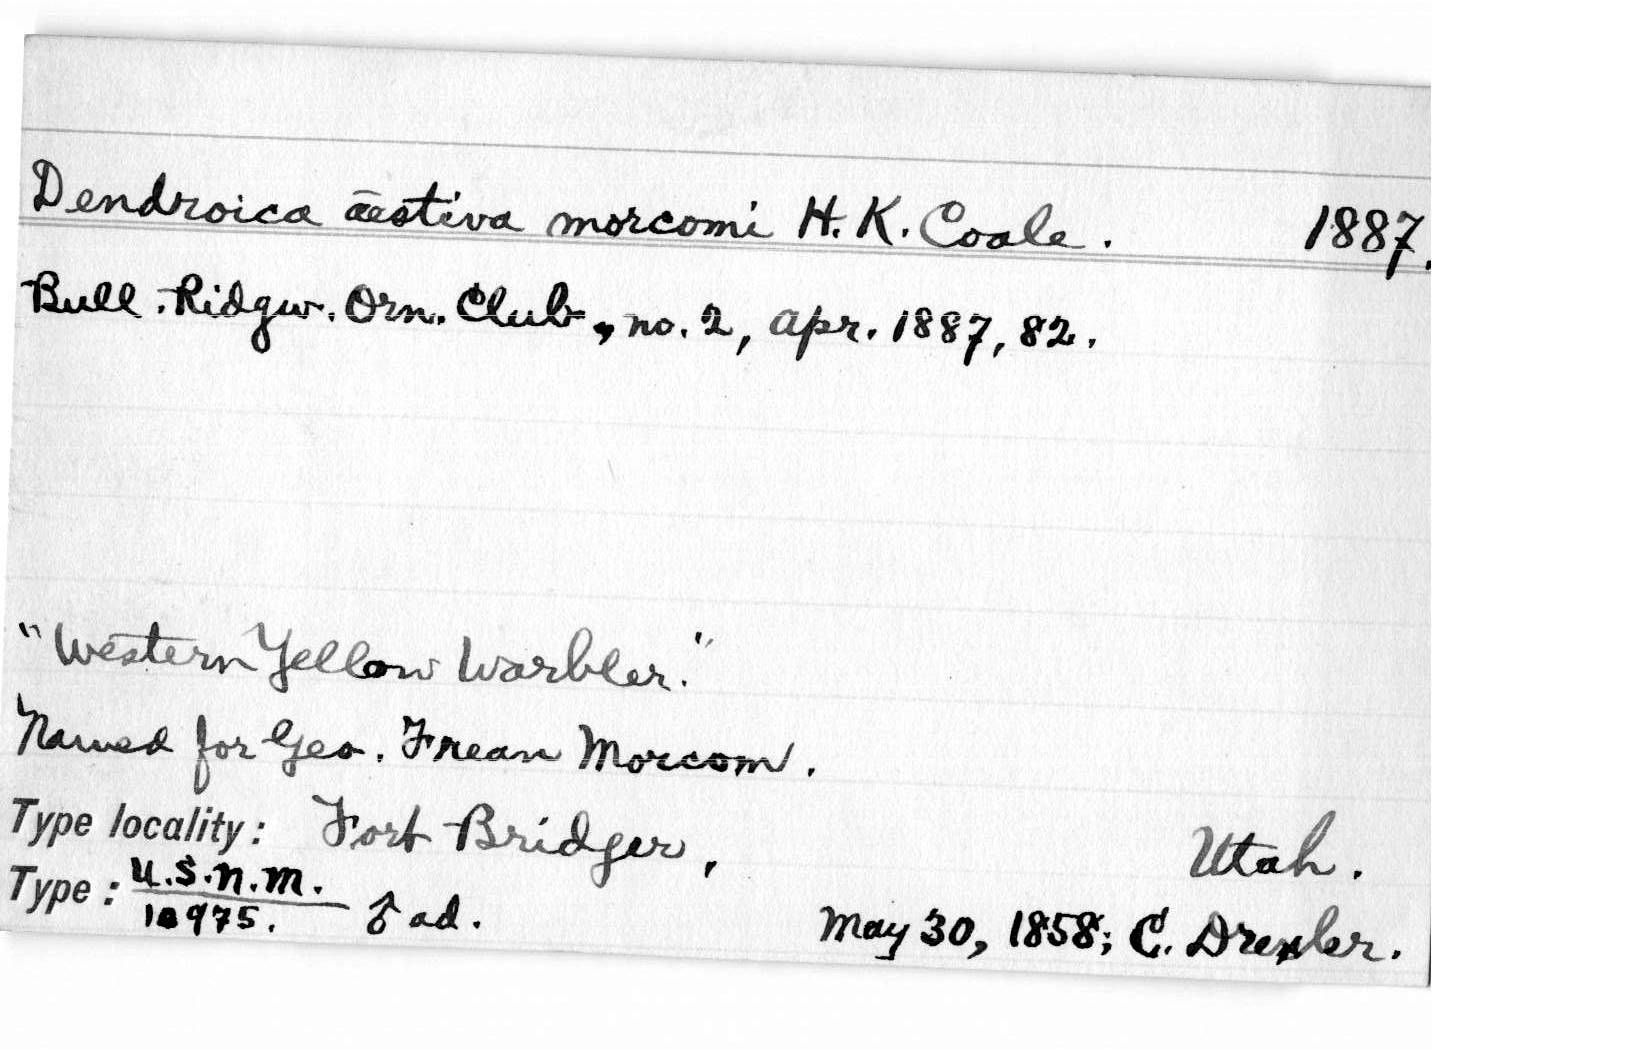 Dendroica aestiva morcomi H. K. Coale. 1887.
Bull. Ridgw. Orn. Club, no. 2, Apr. 1887, 82.
"Western Yellow Warbler."
Named for Geo. Frean Morcom.
Type locality: Fort Bridger, Utah.
Type: U.S.N.M. ♂ ad. May 30, 1858; C. Drexler.
10975.